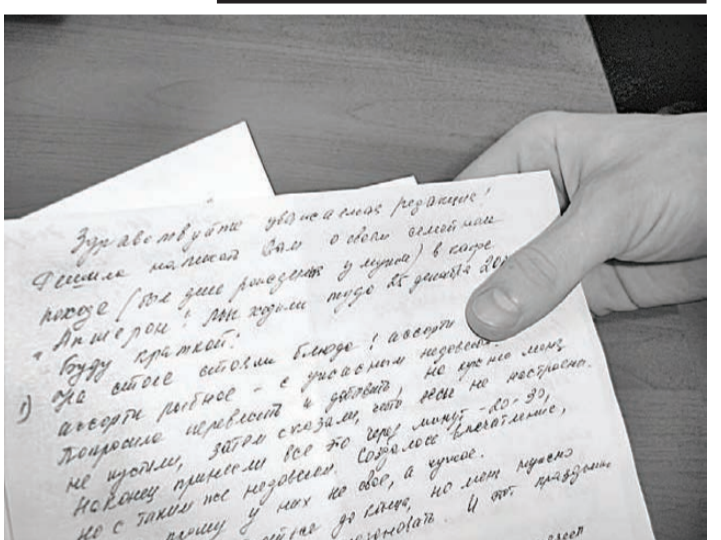 Здравствуйте уважаемая редакция!
Решила написать Вам о своем семейном
походе (был день рождения у мужа) в кафе
"Апшерон". Мы ходили туда 25 декабря 20
Буду краткой:
1) На столе стояли блюда: ассорти
ассорти рыбное - с ужасным недовесом.
Попросила перевесить и добавить, на кухню меня
не пустили, затем сказали, что весы не настроены.
Наконец принесли все это через минут -20-30,
но с таким же недовесом. Создалось впечатление,
у них не свое, а чужое.
до конца, но мет нужно
И тот праздник